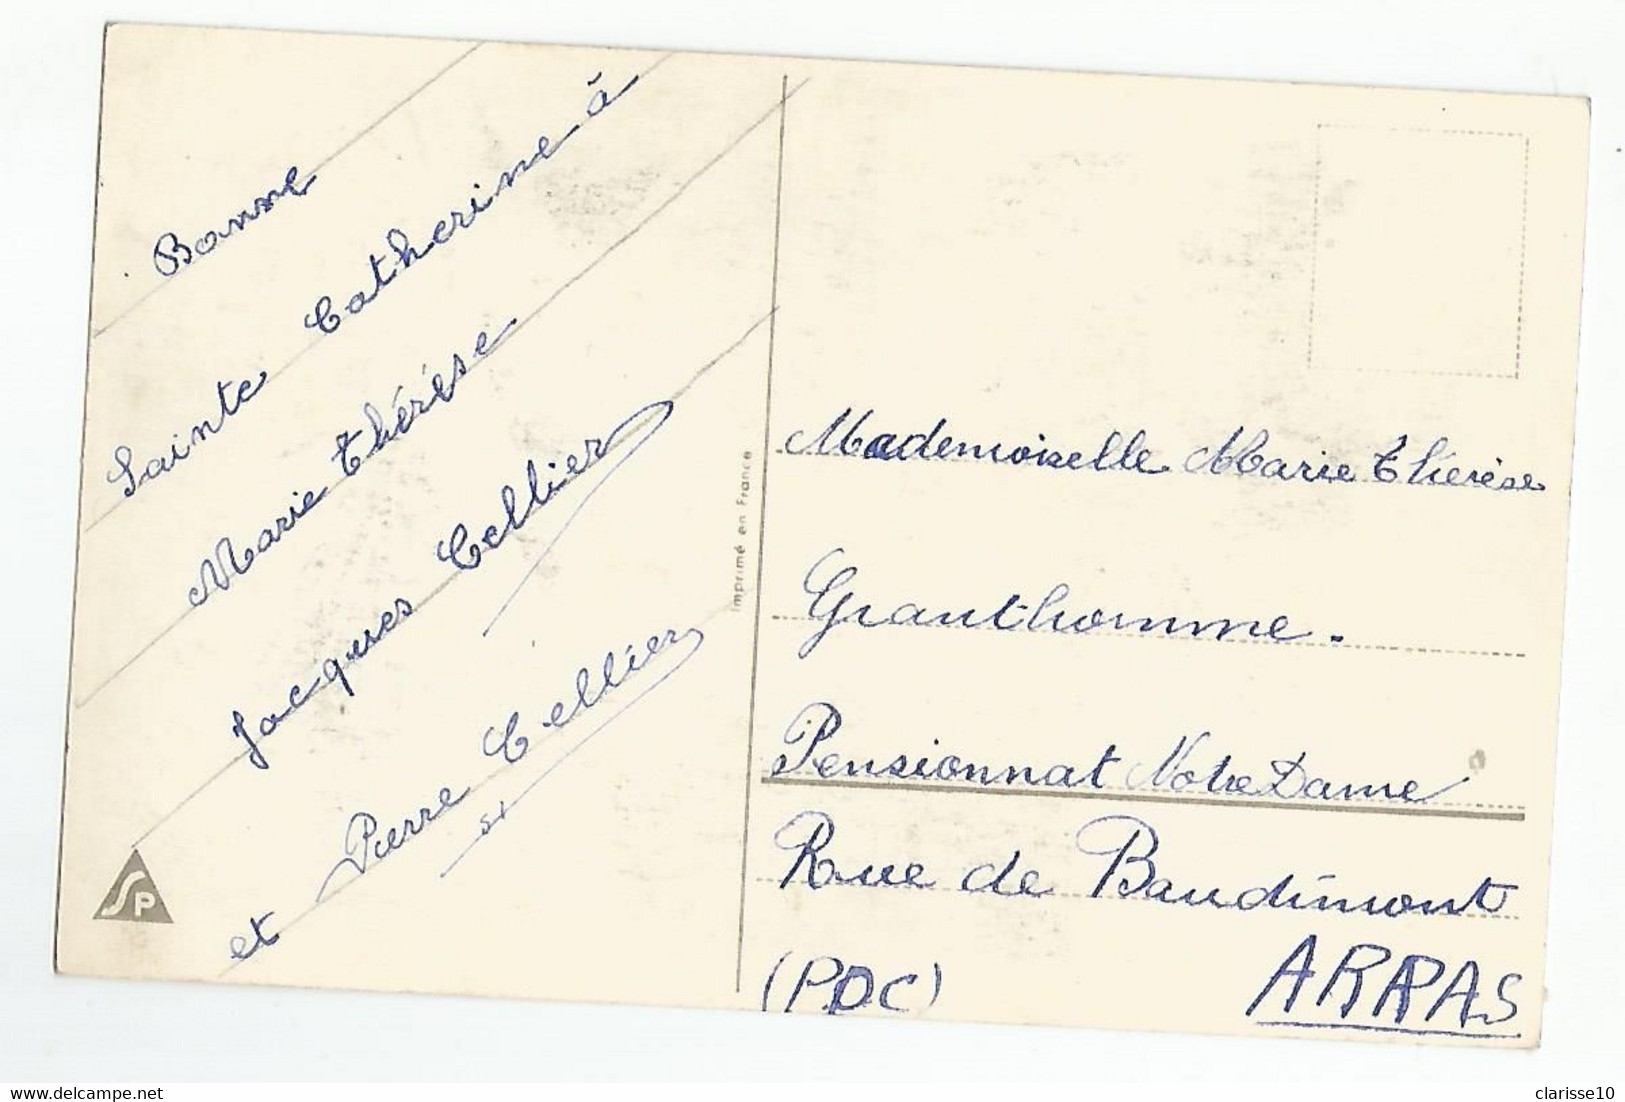 Bonne
Sainte Catherine à
Marie Thérèse
Jacques Cellier
et Pierre Cellier
SP
Imprimé en France
Mademoiselle Marie Thérèse
Granthomme.
Pensionnat Notre Dame
Rue de Baudimont
(PDC) ARRAS
clarisse10